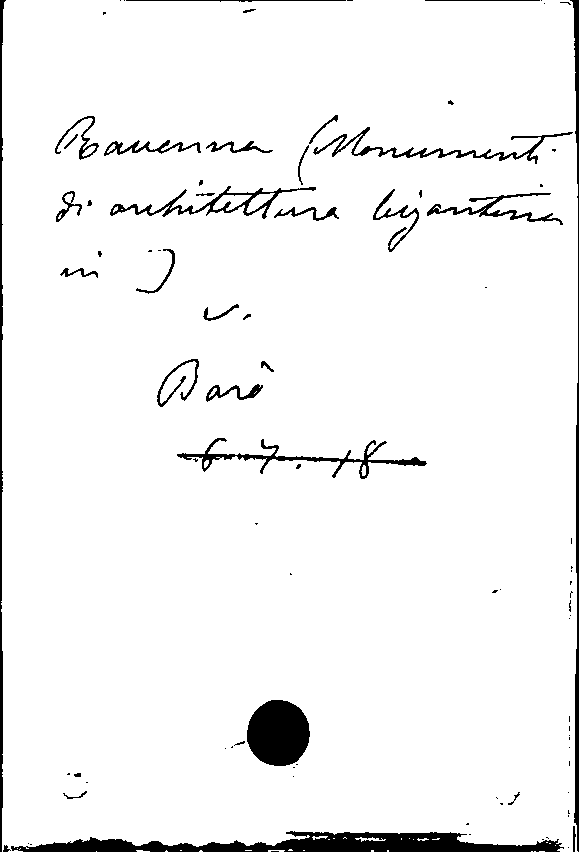 Ravenna (Monumenti
di architettura bizantina
in )
v.
Barò
6 7. 18